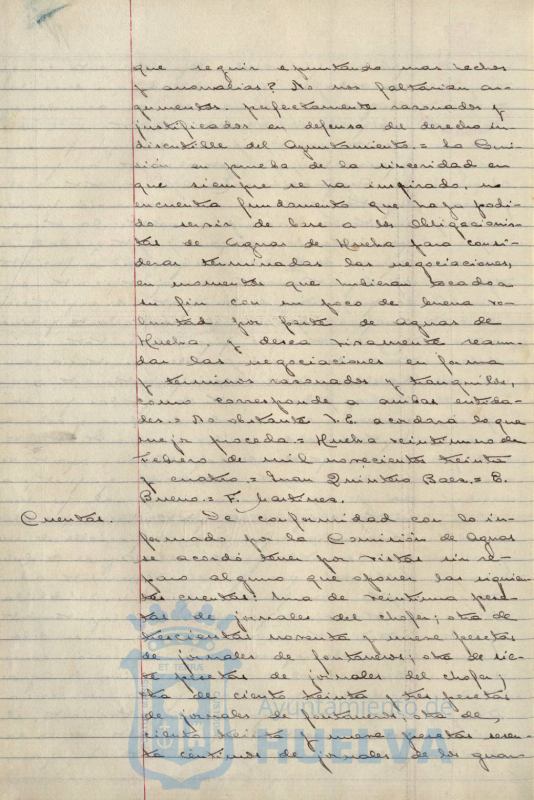 que seguir apuntando mas hechos
y anomalias? No nos faltarian ar-
gumentos perfectamente razonados y
justificados en defensa del derecho in-
discutible del Ayuntamiento.= La Comi-
sión en prueba de la sinceridad en
que siempre se ha inspirado, no
encuentra fundamento que haya podi-
do servir de base a los Obligacionis-
tas de Aguas de Huelva para consi-
derar terminadas las negociaciones,
en momentos que hubieran tocado a
su fin con un poco de buena vo-
luntad por parte de Aguas de
Huelva, y desea vivamente reanu-
dar las negociaciones en forma
y terminos razonados y tranquilos,
como corresponde a ambas entida-
des.= No obstante V.E. acordará lo que
mejor proceda.= Huelva veintiuno de
Febrero de mil novecientos treinta
y cuatro.= Juan Quintero Baez.= E.
Bueno.= F. Martinez.
Cuentas. De conformidad con lo in-
formado por la Comisión de Aguas
se acordó tener por vistas sin re-
paro alguno que oponer las siguien-
tes cuentas: Una de veintiuna pese-
tas de jornales del chofer; otra de
trescientas noventa y nueve pesetas
de jornales de fontaneros; otra de sie-
te pesetas de jornales del chofer;
otra de ciento treinta y tres pesetas
de jornales de fontaneros; otra de
ciento treinta y nueve pesetas sesen-
ta centimos de jornales de los guar-
Ayuntamiento de
HUELVA